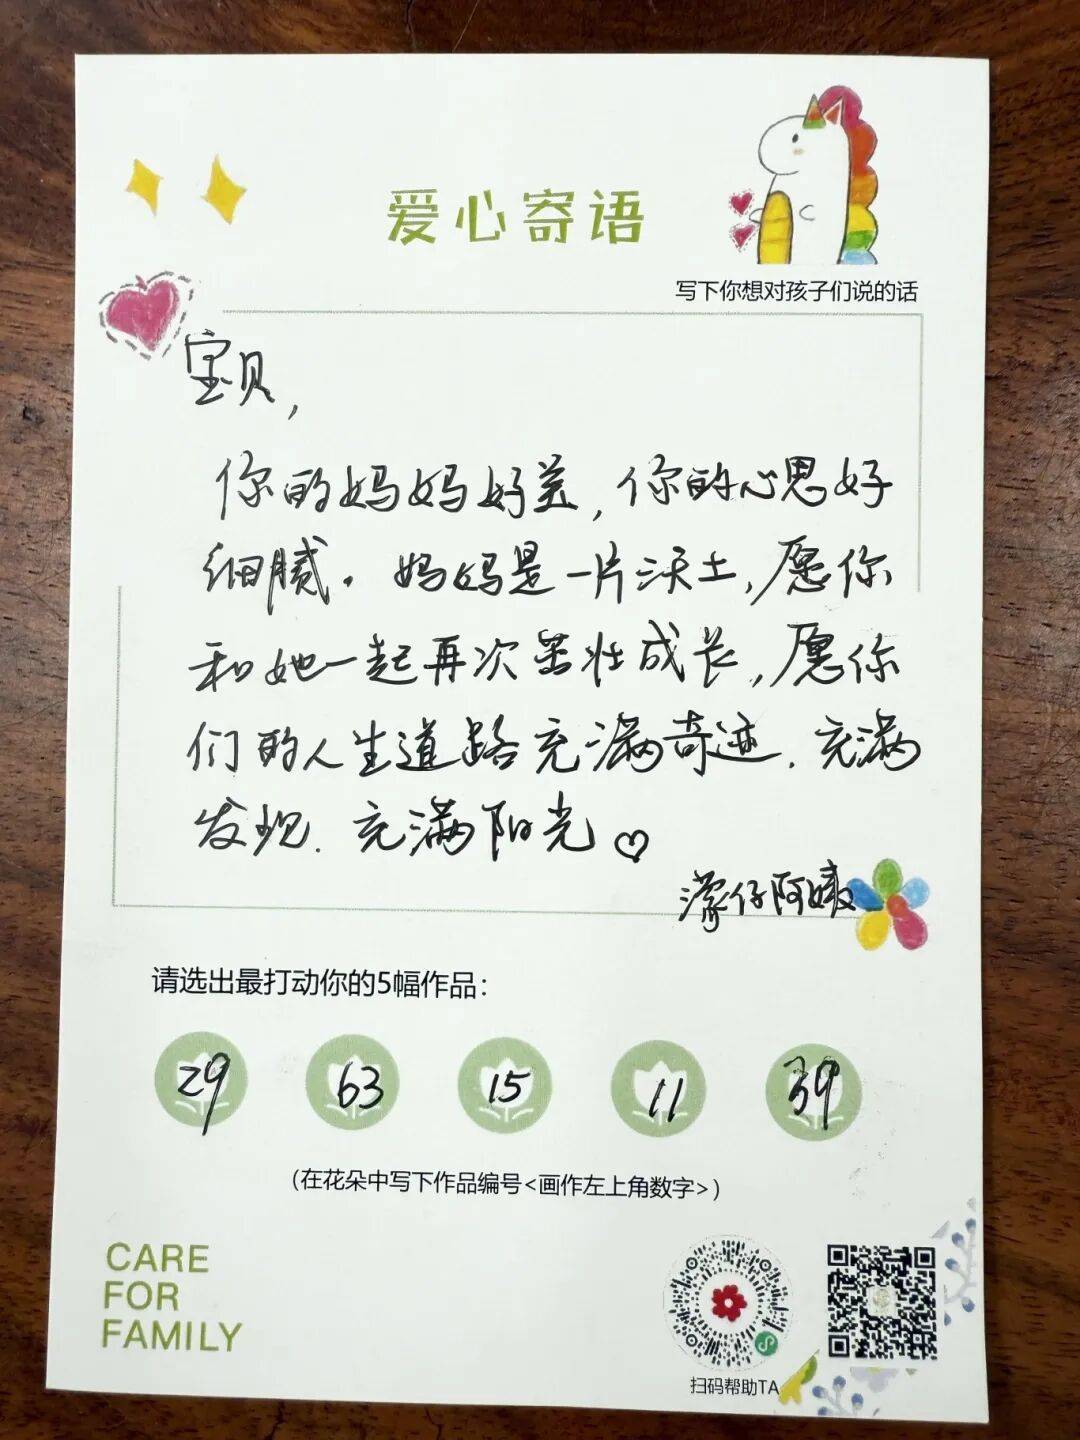 爱心寄语
写下你想对孩子们说的话
宝贝,
你的妈妈好美,你的心思好
细腻。妈妈是一片沃土,愿你
和她一起再次茁壮成长,愿你
们的人生道路充满奇迹.充满
发现.充满阳光♡
濛仔阿姨
请选出最打动你的5幅作品:
29 63 15 11 39
(在花朵中写下作品编号<画作左上角数字>)
CARE
FOR
FAMILY
扫码帮助TA